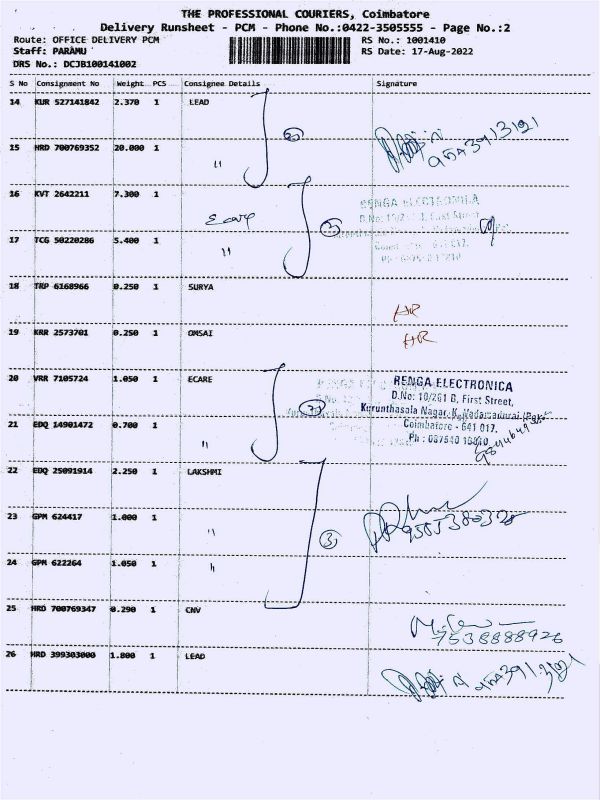 THE PROFESSIONAL COURIERS, Coimbatore
Delivery Runsheet - PCM - Phone No.:0422-3505555 - Page No.:2
Route: OFFICE DELIVERY PCM RS No.: 1001410
Staff: PARAMU RS Date: 17-Aug-2022
DRS No.: DCJB100141002
S No Consignment No Weight PCS Consignee Details Signature
14 KUR 527141842 2.370 1 LEAD
15 HRD 700769352 20.000 1 "
16 KVT 2642211 7.300 1 Ecare
RENGA ELECTRONICA
17 TCG 50220286 5.400 1 "
18 TRP 6168966 0.250 1 SURYA
HR
19 KRR 2573701 0.250 1 OMSAI HR
20 VRR 7105724 1.050 1 ECARE
RENGA ELECTRONICA
D.No: 10/261 B, First Street,
Kurunthasola Nagar, K. Vadamadurai (Post)
Coimbatore - 641 017.
Ph : 087540 10810
21 EDQ 14901472 0.700 1 "
22 EDQ 25091914 2.250 1 LAKSHMI
23 GPM 624417 1.000 1 "
3
24 GPM 622264 1.050 1 "
25 HRD 700769347 0.290 1 CNV
7538888926
26 HRD 399303000 1.800 1 LEAD